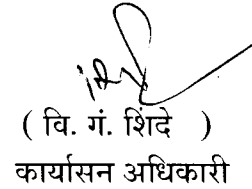 ( वि. गं. शिंदे )
कार्यासन अधिकारी